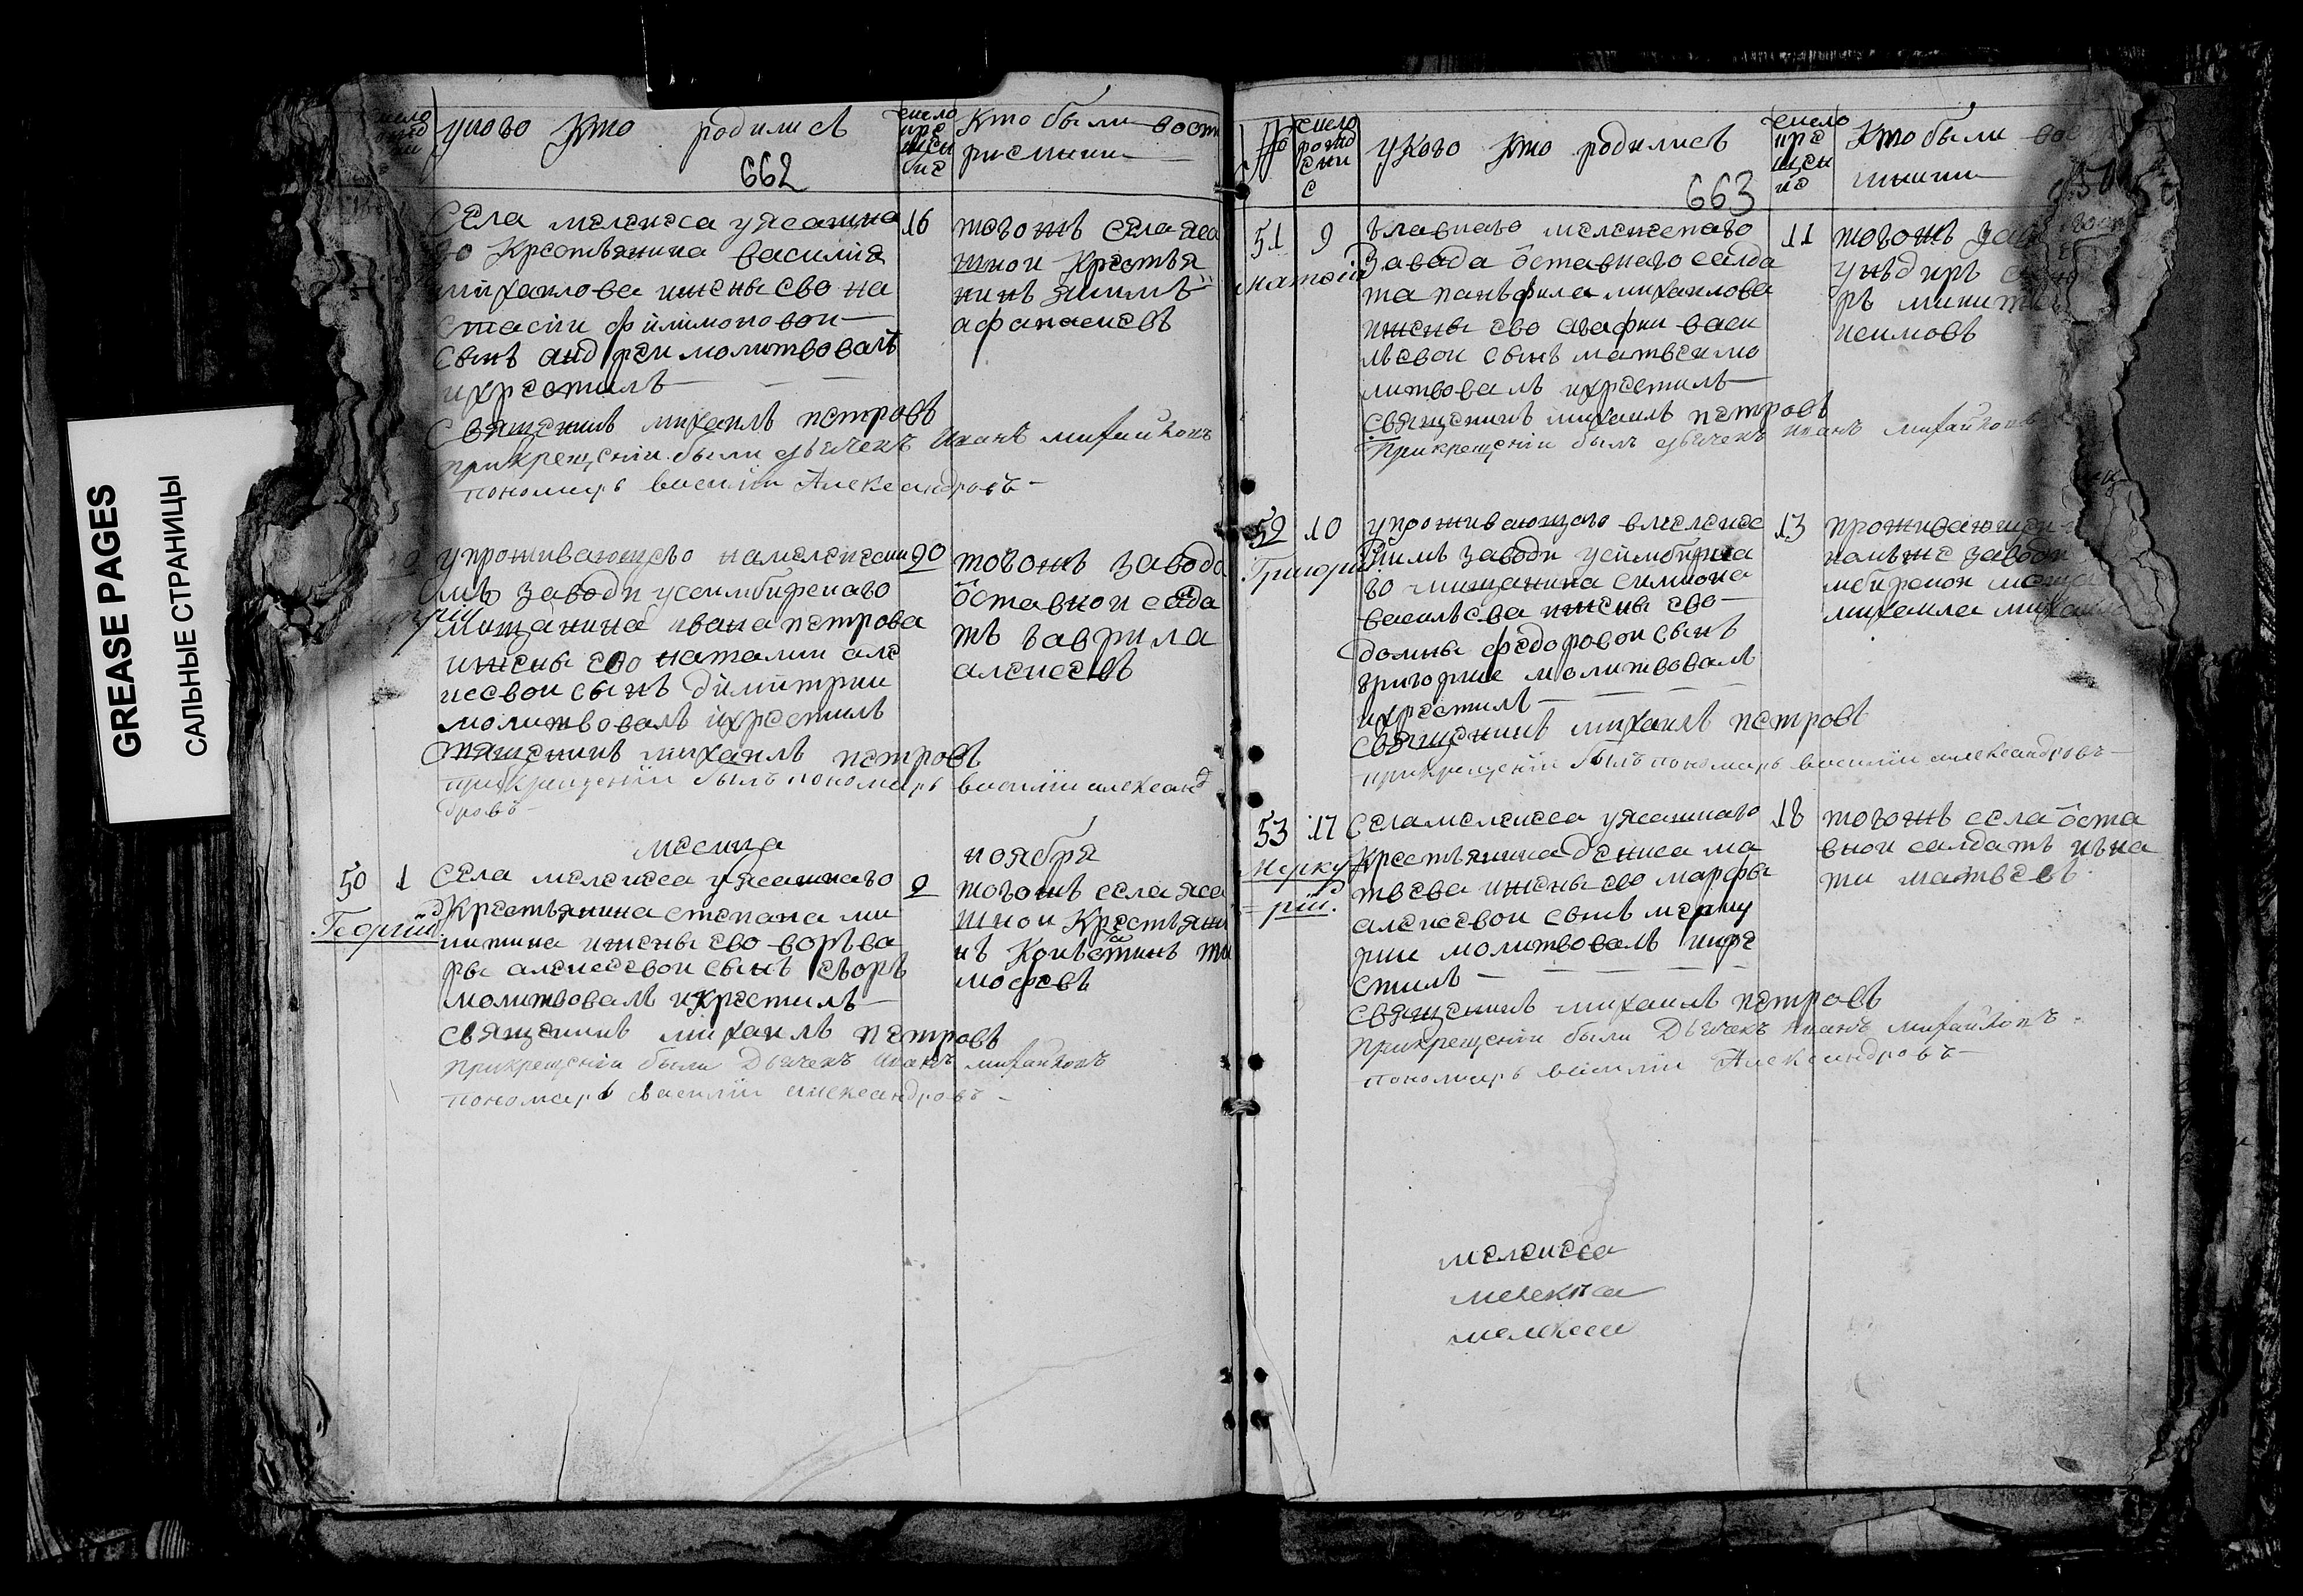 GREASE PAGES
САЛЬНЫЕ СТРАНИЦЫ
число
у кого кто родились
число
кре
щен
ние
Кто были восп
рисмники
662
Села мелекеса уясашна
го Крестьянина василия
михаилова ижены ево на
стасіи филимоновои
сынъ андреи молитвовалъ
икрестилъ
священникъ михаилъ петровъ
прикрещеніи были дьячекъ Иванъ михайловъ
пономарь василіи Александровъ
16
тогожъ села яса
шнои Крестья
нинъ
афанасиевъ
упроживающего намелекески
мъ заводи усимбирскаго
мищанина ивана петрова
ижены ево наталии але
ксевои сынъ димитрии
молитвовалъ икрестилъ
священникъ михаилъ петровъ
прикрещеніи былъ пономарь василіи александ
дровъ
20
тогожъ завода
ѿставнои солда
тъ гаврила
алексевъ
месица ноября
50 1
Георгій
Села мелекеса уясашнаго
Крестьянина степана ми
китина ижены ево ворьва
ры алексевои сынъ егоръ
молитвовалъ икрестилъ
священникъ михаилъ петровъ
прикрещеніи были Дьячекъ Иванъ михайловъ
пономарь василіи александровъ
2
тогожъ села яса
шнои Крестьяни
нъ Констатинъ ти
мофеевъ
№
число
рожд
ени
е
у кого кто родились
число
кре
щен
ие
Кто были вос
663
51 9
матфій
главнаго мелекескаго
Завада ѿставного салда
та панфила михаилова
ижены ево агафии васи
льевои сынъ матвеи мо
литвовалъ икрестилъ
священникъ михаилъ петровъ
Прикрещеніи былъ дьячекъ Иванъ михайловъ
11
тогожъ
унъдиръ
ръ микита
52 10
Григорій
упроживающего вмелекес
скимъ заводи усимбирска
го мищанина симиона
васильева ижены ево
домны федоровои сынъ
григорие молитвовалъ
икрестилъ
священникъ михаилъ петровъ
прикрещеніи былъ пономарь василіи александровъ
13
проживающеи
комъже заводи
мбирскои меща
михаила михаило
53 17
Мерку
рій.
Села мелекеса уясашнаго
Крестьянина дениса ма
твева ижены ево марфы
алексевои сынъ мерку
рии молитвовалъ икре
стилъ
священникъ михаилъ петровъ
Прикрещеніи были Дьячекъ Иванъ михайловъ
пономарь василіи Александровъ
18
тогожъ села ѿста
внои салдатъ игна
ти матвевъ
мелекеса
мелекеса
мелекеса